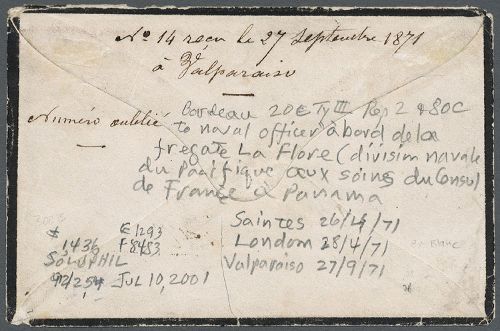 No 14 reçu le 27 Septembre 1871
à Valparaiso
Numéro oublié
Bordeau 20c Ty III Rep 2 & 80c
to naval officer à bord de la
fregate La Flore (division navale
du Pacifique aux soins du Consul
de France à Panama
Saintes 26/4/71
London 28/4/71
Valparaiso 27/9/71
£1293
1,436 F8483
SOLUPHIL
92/254 Jul 10, 2001